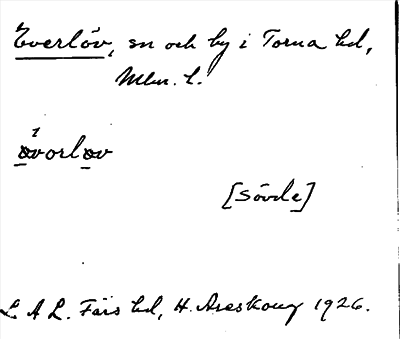 Everlöv, sn och by i Torna hd,
Mlm. l.
øvorløv
[Sövde]
L A L. Färs hd, H. Areskoug 1926.